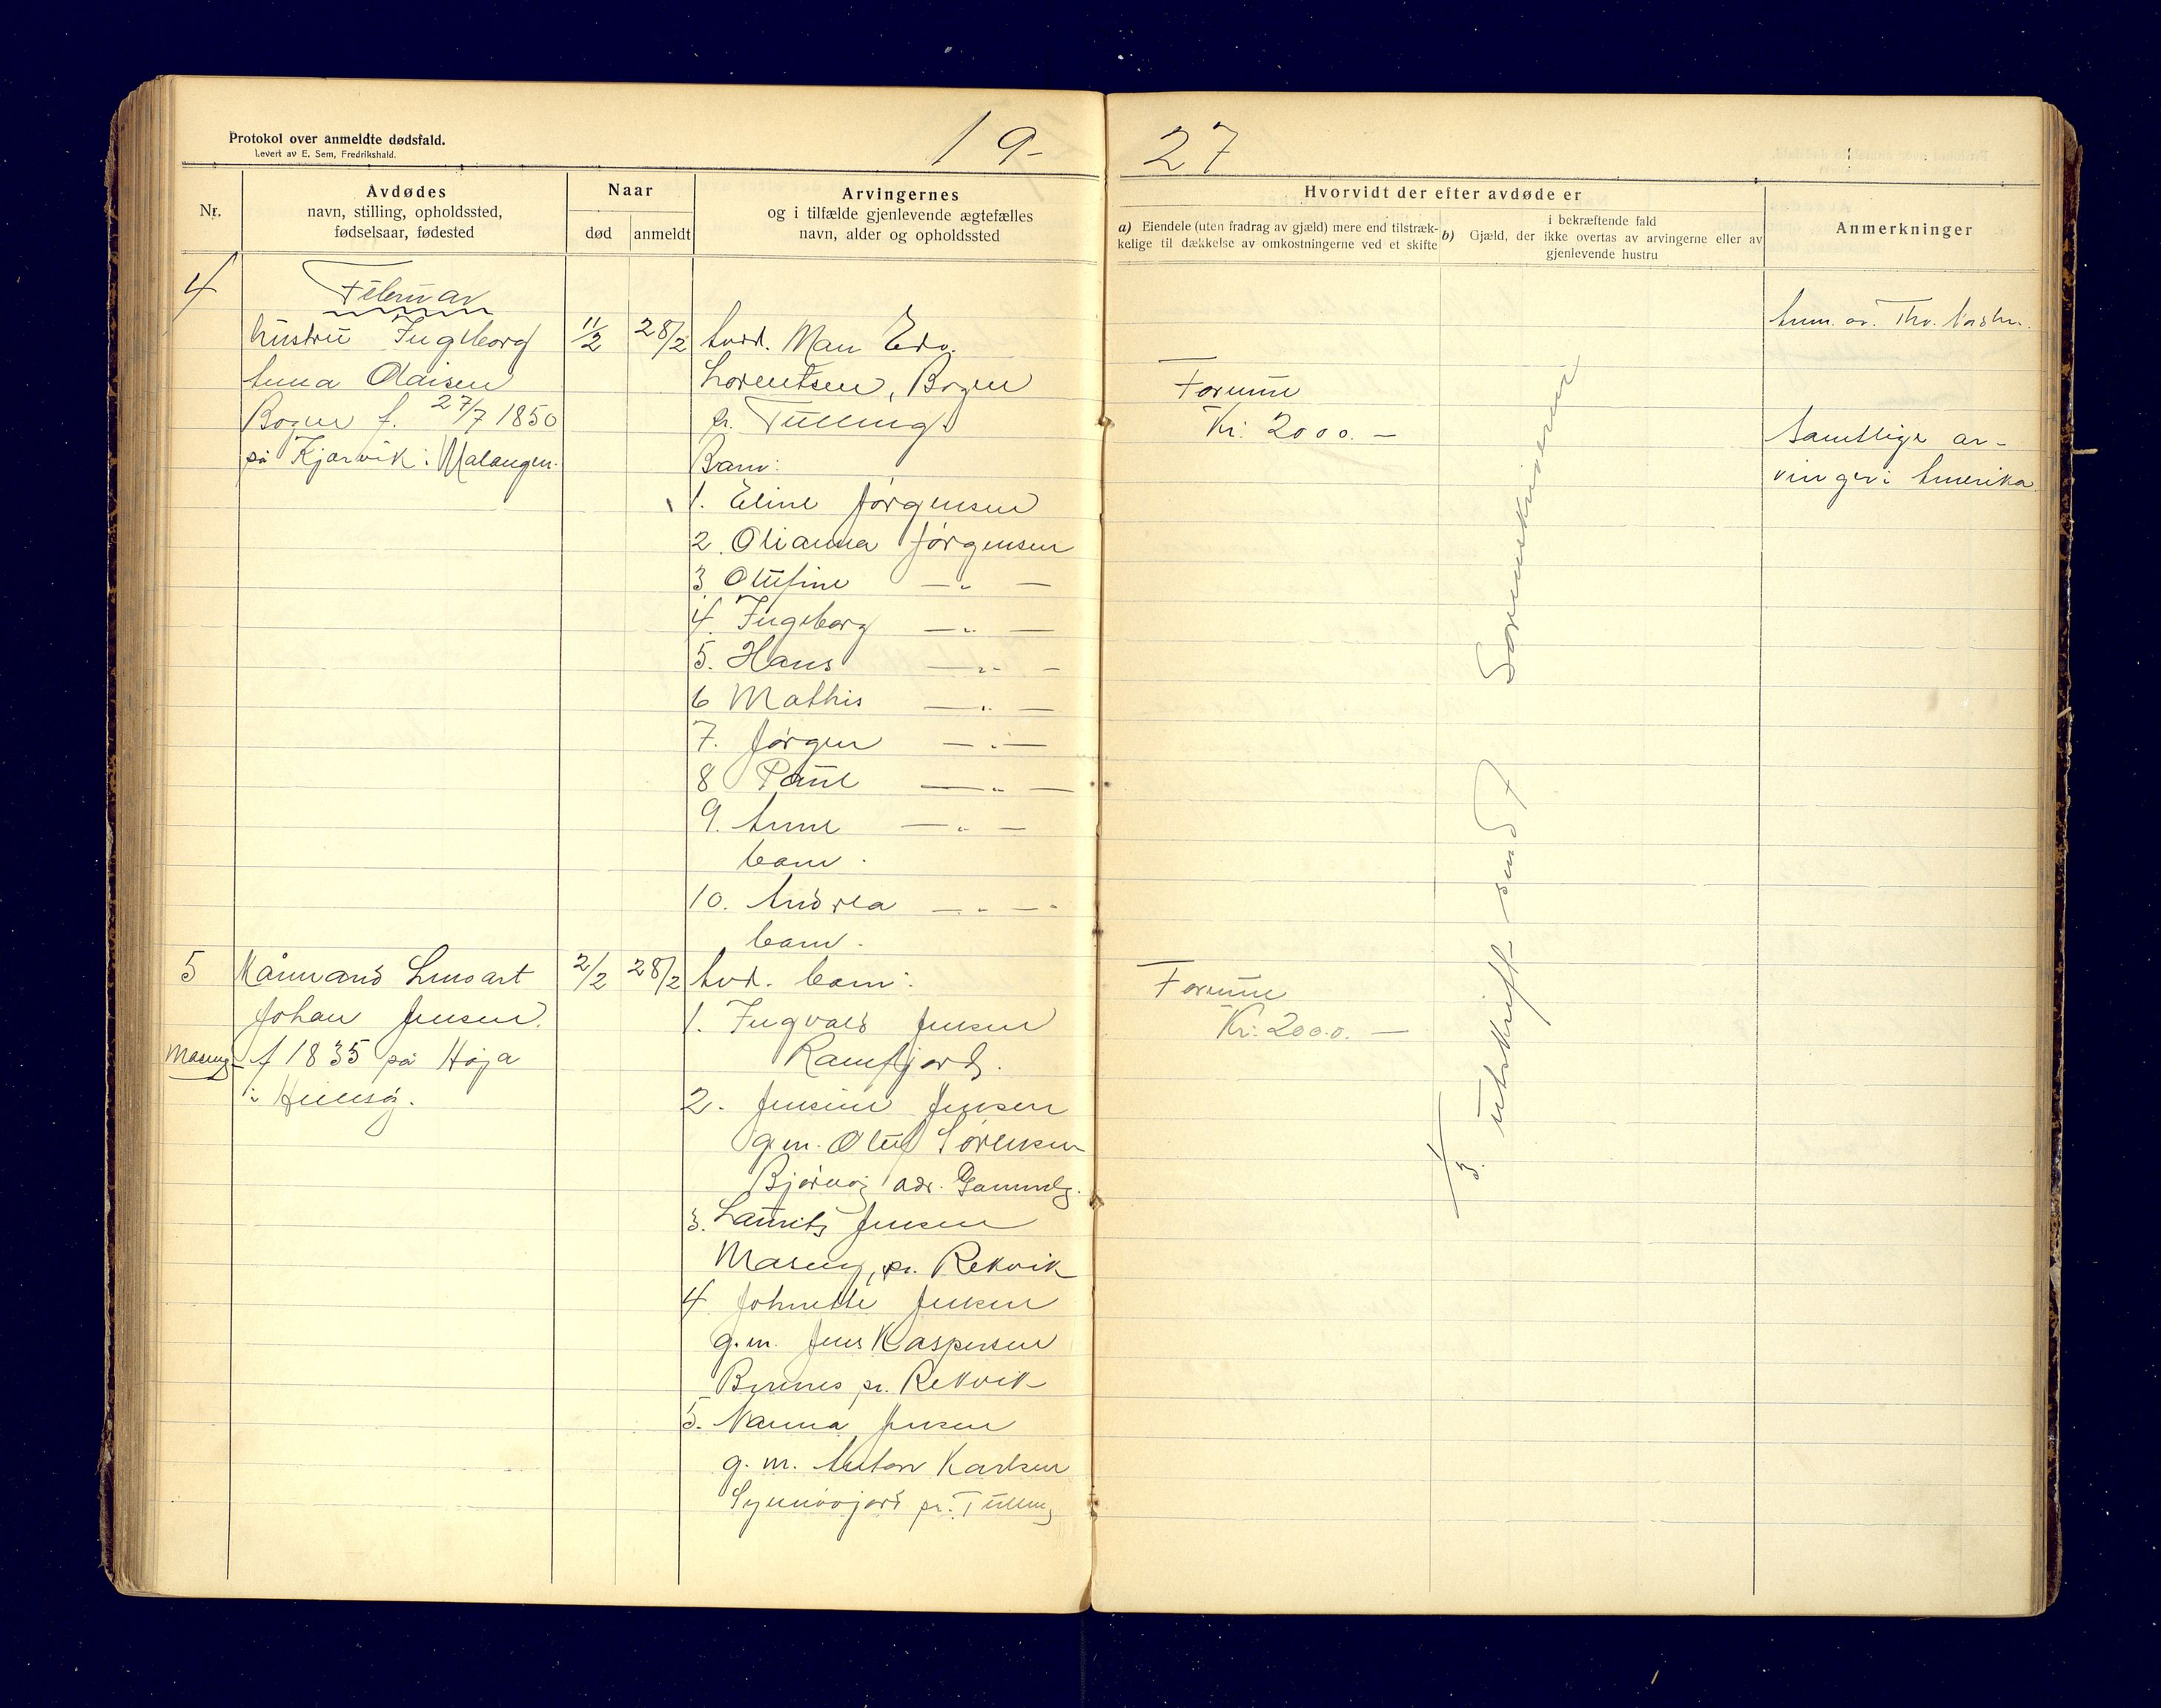 Protokol over anmeldte dødsfald.
Levert av E. Sem, Fredrikshald.
19-
27
Nr.
Avdødes
navn, stilling, opholdssted,
fødselsaar, fødested
Naar
død
anmeldt
Arvingernes
og i tilfælde gjenlevende ægtefælles
navn, alder og opholdssted
Hvorvidt der efter avdøde er
a) Eiendele (uten fradrag av gjæld) mere end tilstræk-
kelige til dækkelse av omkostningerne ved et skifte
i bekræftende fald
b) Gjæld, der ikke overtas av arvingerne eller av
gjenlevende hustru
Anmerkninger
4
Februar
hustru Ingeborg
Anna Olaisen
Bogen f. 27/7 1850
på Kjarvik i Malangen.
11/2
28/2
Avdd. Man Edv.
Lorentsen, Bogen
pr. Tulleng.
Barn:
1. Eline Jørgensen
2. Olianna Jørgensen
3 Olufine —"—
4. Ingeborg —"—
5. Hans —"—
6 Mathis —"—
7. Jørgen —"—
8 Paul —"—
9. Anne —"—
barn.
10. Andrea —"—
barn.
Formue
Kr: 2000.—
Anm. av. Thv.
Samtlige ar-
vinger i Amerika
5
Kårmand Lensart
Johan Jensen.
Maseng f 1835 på Høja
i Hillesøy.
2/2
28/2
Avd. barn:
1. Ingvald Jensen
Ramfjord.
2. Jensine Jensen
g.m. Oluf Sørensen
Bjørnøj adr. Gammelg.
3. Laurits Jensen
Maseng, pr. Rekvik
4 Johnette Jensen
g.m. Jens Kaspersen
Buvnes pr. Rekvik
5. Nanna Jensen
g. m. Anton Karlsen
pr. Tulleng
Formue
Kr: 2000.—
utskrift send Sorenskriveren